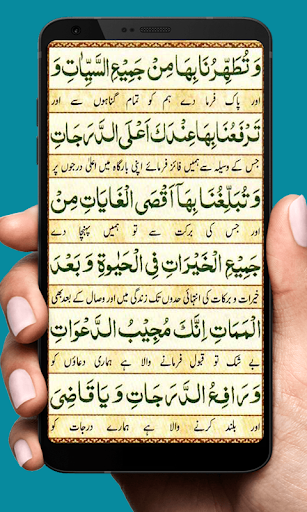 وَتُطَهِّرُنَا بِهَا مِنْ جَمِيْعِ السَّيِّاٰتِ وَ
اور پاک فرما دے ہم کو تمام گناہوں سے اور
تَرْفَعُنَا بِهَا عِنْدَكَ اَعْلَى الدَّرَجَاتِ
جس کے وسیلہ سے ہمیں فائز فرمائے اپنی بارگاہ میں اعلٰی درجوں پر
وَتُبَلِّغُنَا بِهَآ اَقْصَى الْغَايَاتِ مِنْ
اور جس کی برکت سے تو ہمیں پہنچا دے
جَمِيْعِ الْخَيْرَاتِ فِي الْحَيٰوةِ وَ بَعْدَ
خیرات و برکات کی انتہائی حدوں تک زندگی میں اور وصال کے بعد بھی
الْمَمَاتِ اِنَّكَ مُجِيْبُ الدَّعْوَاتِ
بے شک تو قبول فرمانے والا ہے ہماری دعاؤں کو
وَرَافِعُ الدَّرَجَاتِ وَ يَا قَاضِيَ
اور بلند کرنے والا ہے ہمارے درجات کو